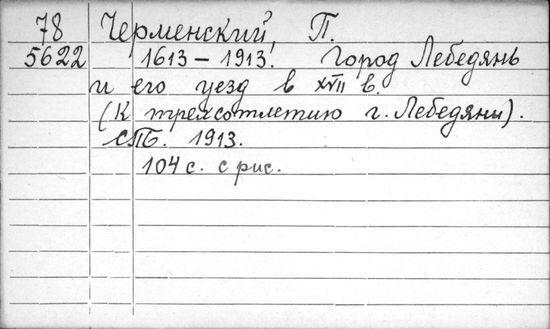 78 Черменский, П.
5622 1613 – 1913. Город Лебедянь
и его уезд в XVII в.
(К трехсотлетию г. Лебедяни).
СПБ. 1913.
104 с. с рис.